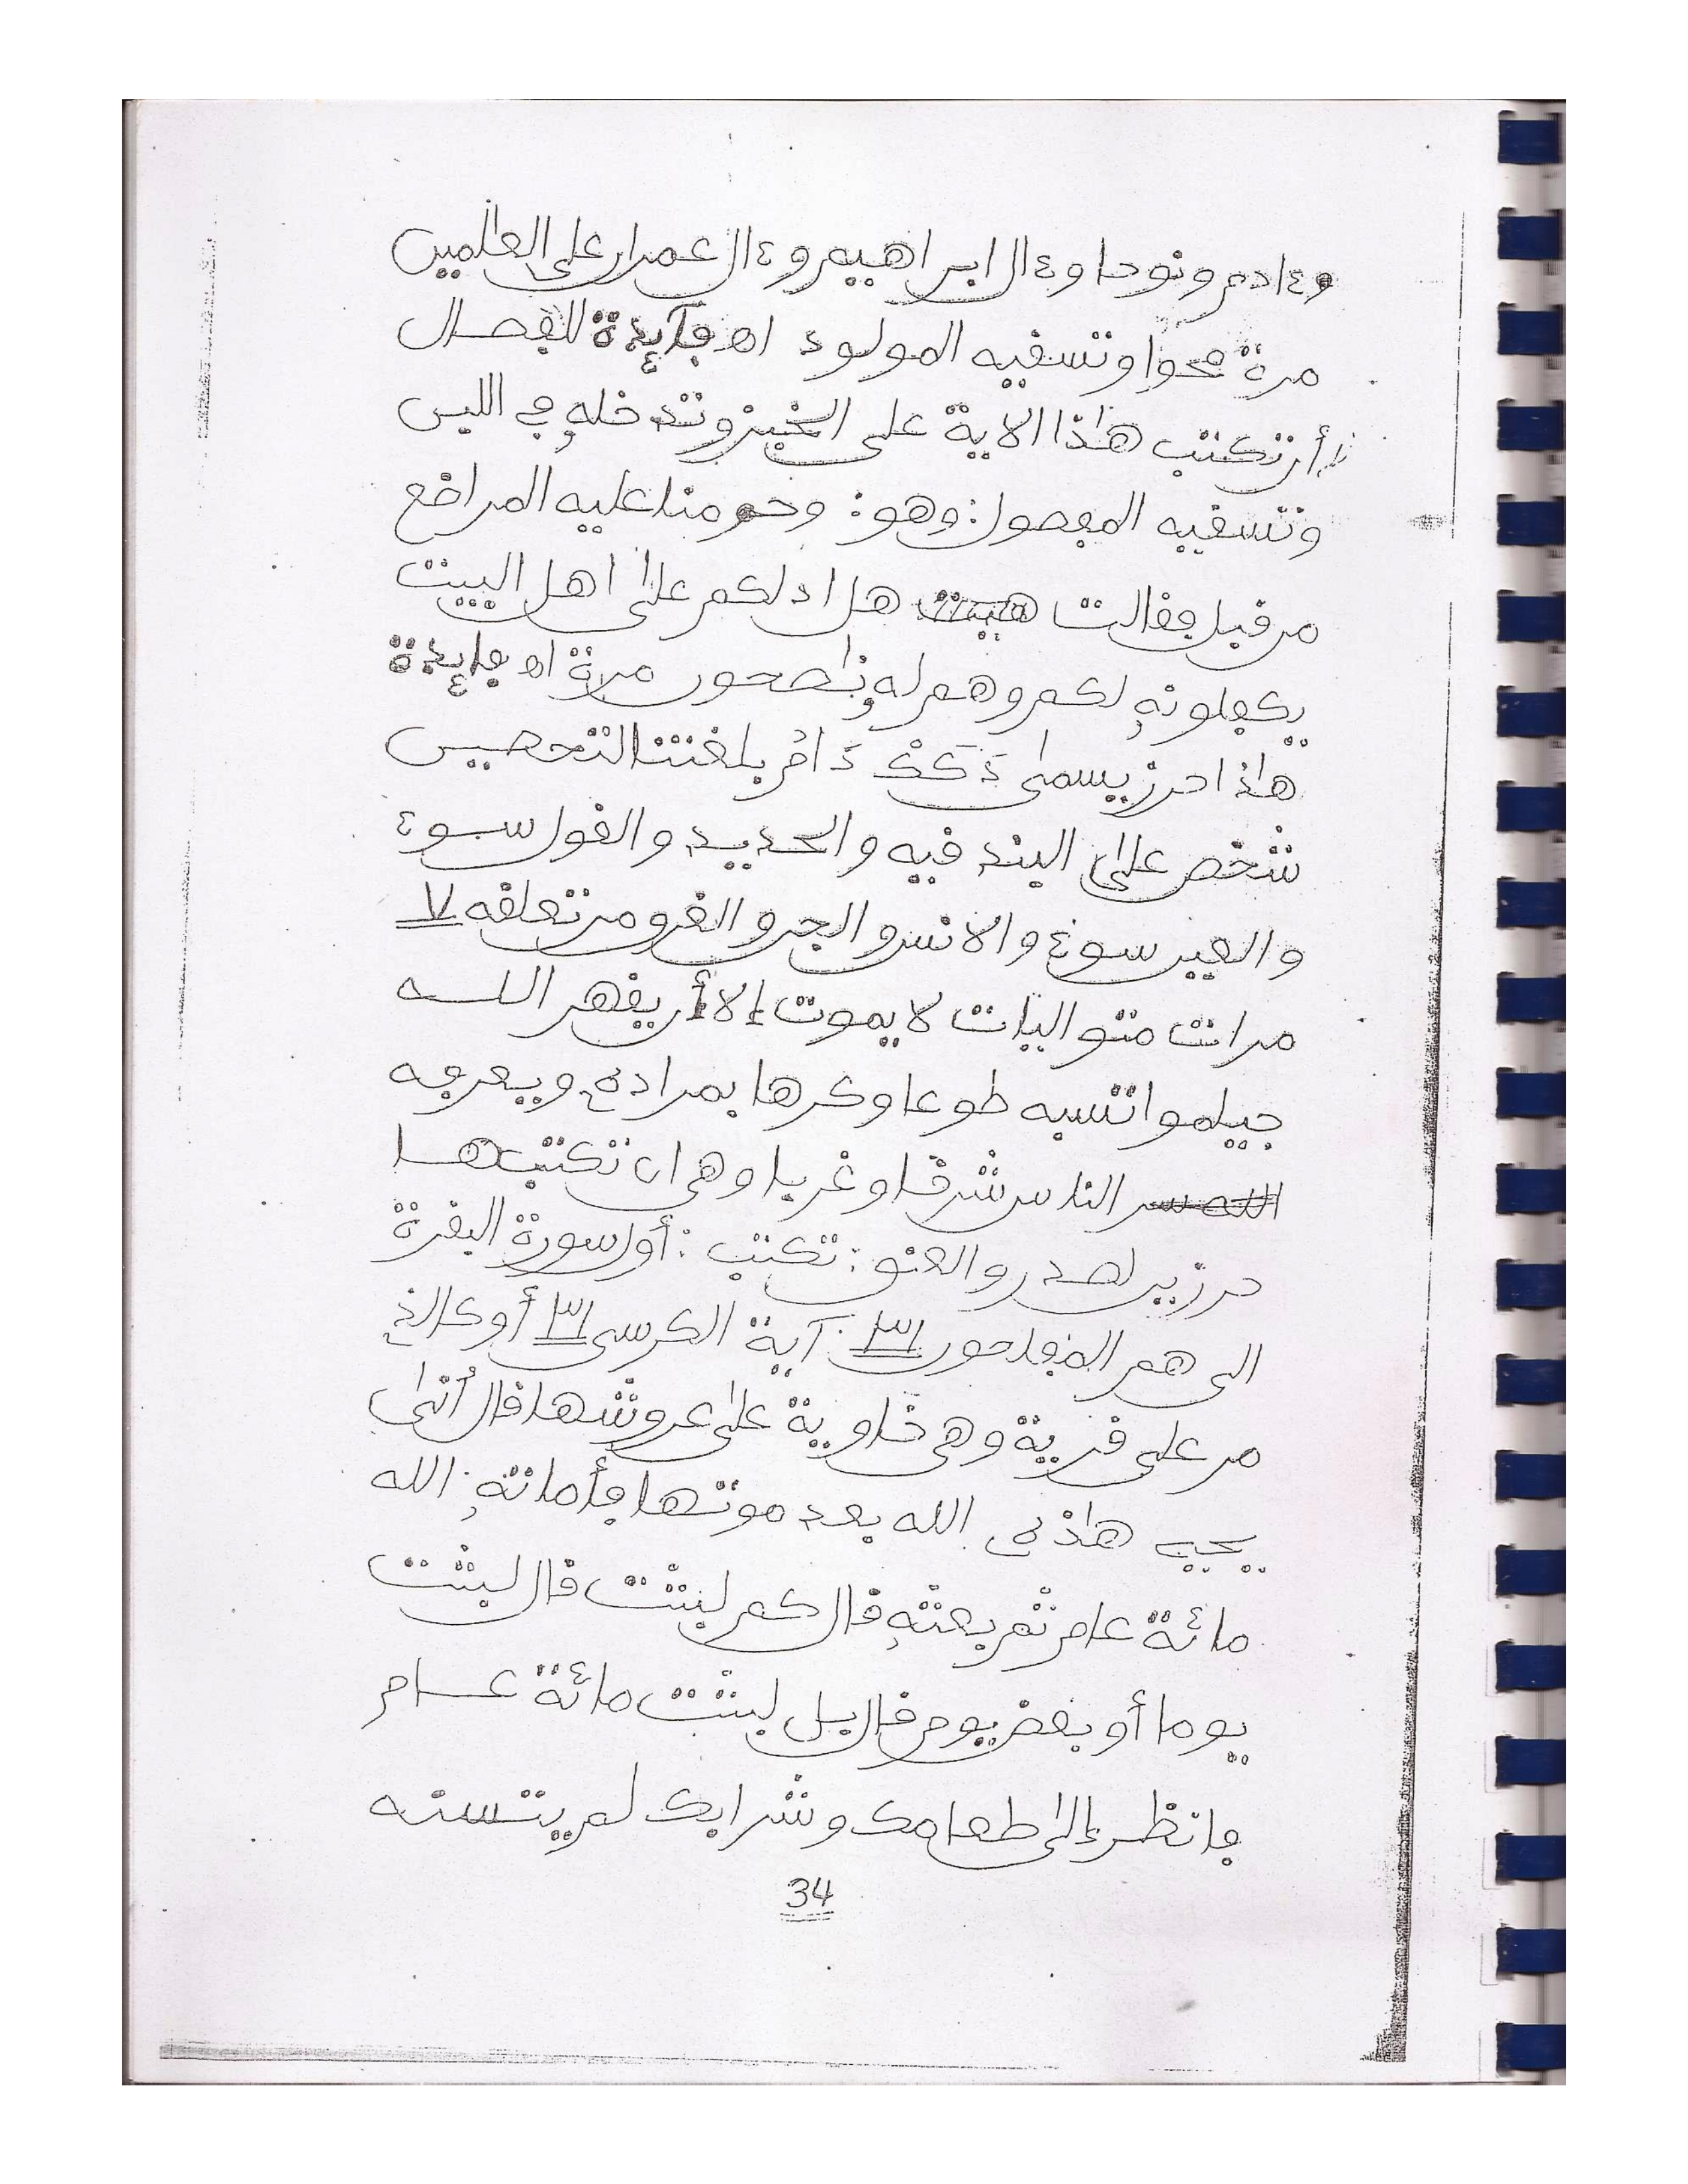 وءادم ونوحا وءال ابراهيم وءال عمران على العلمين
مرة محوا وتسقيه المولود اه فآيدة للفصال
أن تكتب هذا الاية على الخبز وتدخله في اللبن
وتسقيه المفصول: وهو: وحرمنا عليه المراضع
من قبل فقالت هل ادلكم على اهل البيت
يكفلونه لكم وهم له نصحون مرة اه فايدة
هذا حرز يسمى دَكَكْ دَامْ بلغتنا التحصين
شخص على البند فيه والحديد والقول سوء
والعين سوء والانس والجن والغرو من تعلقه ٧
مرات متواليات لا يموت إلا أن يقهر الله
طوعا وكرها بمراده ويعرفه
الناس شرقا وغربا وهي ان تكتبها
حرزين لصدر والعنق: تكتب: أول سورة البقرة
الى هم المفلحون ٣١ آية الكرسي ٣١ أو كالذ
مر على قرية وهي خاوية على عروشها قال أنى
يحيي هذه الله بعد موتها فأماته الله
مائة عام ثم بعثه قال كم لبثت قال لبثت
يوما أو بعض يوم قال بل لبثت مائة عام
فانظر إلى طعامك وشرابك لم يتسنه
34